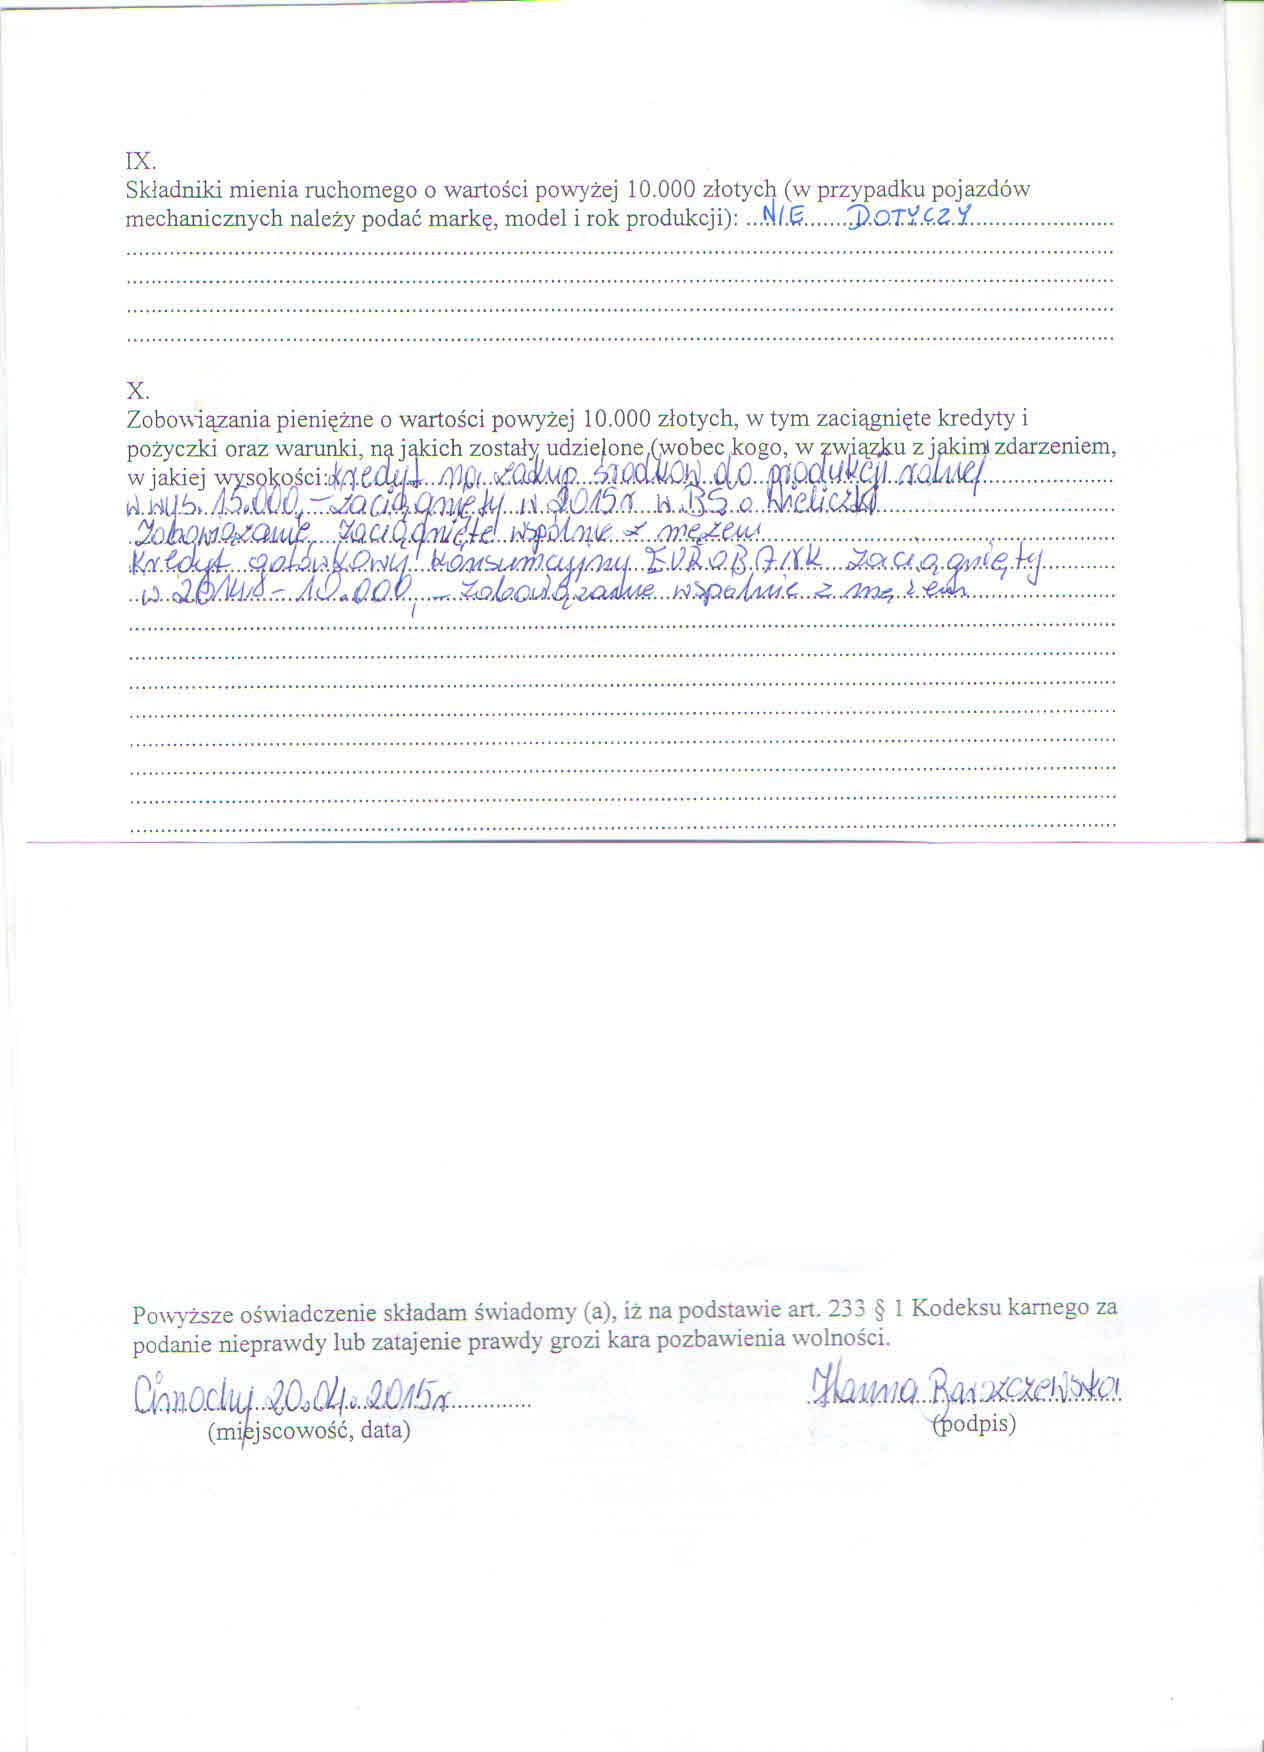 IX.
Składniki mienia ruchomego o wartości powyżej 10.000 złotych (w przypadku pojazdów
mechanicznych należy podać markę, model i rok produkcji): ...NIE.......DOTYCZY.......................
X.
Zobowiązania pieniężne o wartości powyżej 10.000 złotych, w tym zaciągnięte kredyty i
pożyczki oraz warunki, na jakich zostały udzielone (wobec kogo, w związku z jakim zdarzeniem,
w jakiej wysokości: kredyt na zakup środków do produkcji rolnej
w wys. 15.000,- zaciągnięty w 2015r w BS o Wieliczki
Zobowiązanie zaciągnięte wspólnie z mężem
Kredyt gotówkowy konsumcyjny EUROBANK zaciągnięty
w - 10.000,- zobowiązanie wspólnie z mężem
Powyższe oświadczenie składam świadomy (a), iż na podstawie art. 233 § 1 Kodeksu karnego za
podanie nieprawdy lub zatajenie prawdy grozi kara pozbawienia wolności.
20.04.2015r Hanna Barszczewska
(miejscowość, data) (podpis)